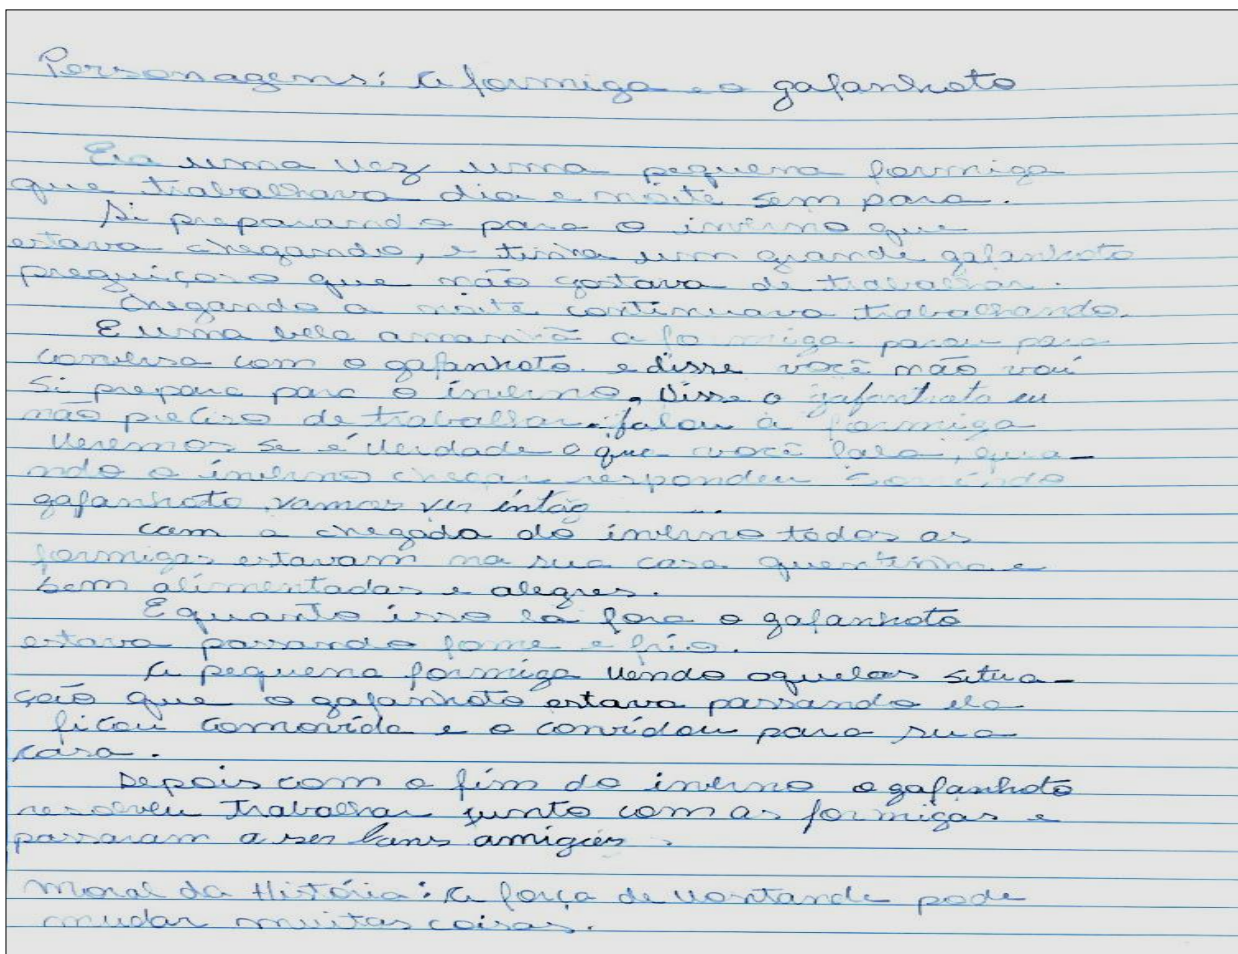 Personagens: A formiga e o gafanhoto
Era uma vez uma pequena formiga
que trabalhava dia e nôite sem para.
Si preparando para o inverno que
estava chegando, e tinha um grande gafanhoto
preguiçoso que não gostava de trabalhar.
Chegando a nôite continuava trabalhando.
E uma bela amanhã a formiga parou para
conversa com o gafanhoto. e disse você não vai
si prepara para o inverno. Disse o gafanhoto eu
não preciso de trabalhar. falou a formiga
veremos se é verdade o que você fala, qua-
ndo o inverno chegar respondeu sorrindo
gafanhoto vamos ver intão ...
com a chegada do inverno todos as
formigas estavam na sua casa quentinha e
bem alimentadas e alegres.
Equanto isso lá fora o gafanhoto
estava passando fome e frio.
A pequena formiga vendo aquelas situa-
ção que o gafanhoto estava passando ela
ficou comovida e o convidou para sua
casa.
Depois com o fim do inverno o gafanhoto
resolveu trabalhar junto com as formigas e
passaram a ser bons amigos.
Moral da História: A força de vontande pode
mudar muitas coisas.